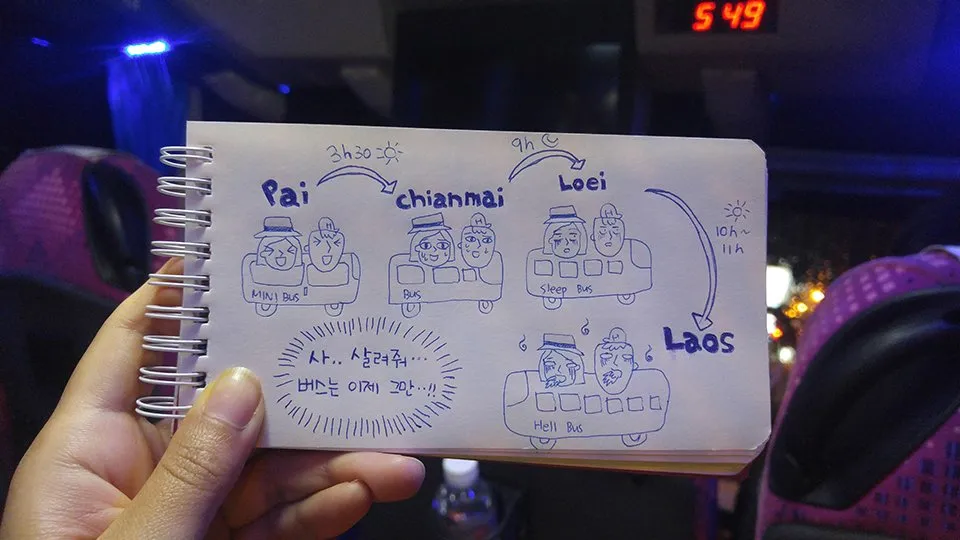 5 49
3h30
9h
Pai
chianmai
Loei
10h~
11h
H
H
H
MINI BUS
BUS
Sleep BUS
Laos
사.. 살려줘...
버스는 이제 그만...!!
H
Hell Bus